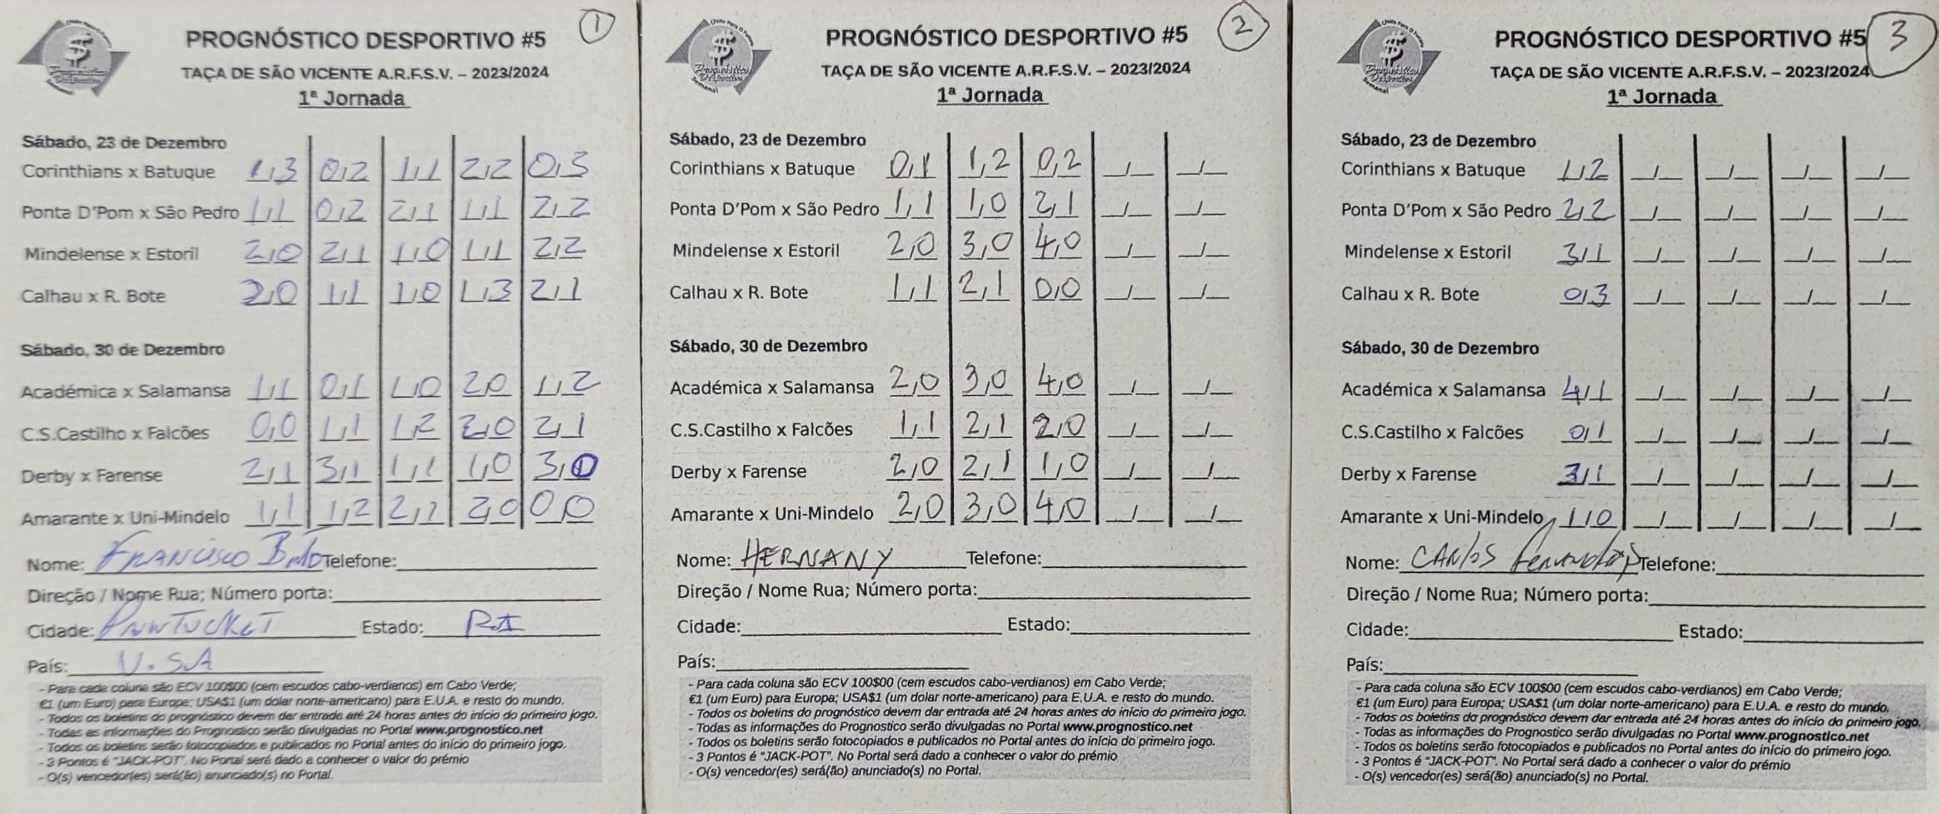 1
PROGNÓSTICO DESPORTIVO #5
TAÇA DE SÃO VICENTE A.R.F.S.V. – 2023/2024
1ª Jornada
Sábado, 23 de Dezembro
Corinthians x Batuque 1/3 0/2 1/1 2/2 0/3
Ponta D'Pom x São Pedro 1/1 0/2 2/1 1/1 2/2
Mindelense x Estoril 2/0 2/1 1/0 1/1 2/2
Calhau x R. Bote 2/0 1/1 1/0 1/3 2/1
Sábado, 30 de Dezembro
Académica x Salamansa 1/1 0/1 1/0 2/0 1/2
C.S.Castilho x Falcões 0/0 1/1 1/2 2/0 2/1
Derby x Farense 2/1 3/1 1/1 1/0 3/0
Amarante x Uni-Mindelo 1/1 1/2 2/2 2/0 0/0
Nome: FRANCISCO Telefone:
Direção / Nome Rua; Número porta:
Cidade: PAWTUCKET Estado: R.I
País: U.S.A
- Para cada coluna são ECV 100$00 (cem escudos cabo-verdianos) em Cabo Verde;
€1 (um Euro) para Europe; USA$1 (um dolar norte-americano) para E.U.A. e resto do mundo.
- Todos os boletins do prognóstico devem dar entrada até 24 horas antes do início do primeiro jogo.
- Todas as informações do Prognostico serão divulgadas no Portal www.prognostico.net
- Todos os boletins serão fotocopiados e publicados no Portal antes do início do primeiro jogo.
- 3 Pontos é "JACK-POT". No Portal será dado a conhecer o valor do prémio
- O(s) vencedor(es) será(ão) anunciado(s) no Portal.
2
PROGNÓSTICO DESPORTIVO #5
TAÇA DE SÃO VICENTE A.R.F.S.V. – 2023/2024
1ª Jornada
Sábado, 23 de Dezembro
Corinthians x Batuque 0/1 1/2 0/2 _/_ _/_
Ponta D'Pom x São Pedro 1/1 1/0 2/1 _/_ _/_
Mindelense x Estoril 2/0 3/0 4/0 _/_ _/_
Calhau x R. Bote 1/1 2/1 0/0 _/_ _/_
Sábado, 30 de Dezembro
Académica x Salamansa 2/0 3/0 4/0 _/_ _/_
C.S.Castilho x Falcões 1/1 2/1 2/0 _/_ _/_
Derby x Farense 2/0 2/1 1/0 _/_ _/_
Amarante x Uni-Mindelo 2/0 3/0 4/0 _/_ _/_
Nome: HERNANY Telefone:
Direção / Nome Rua; Número porta:
Cidade: Estado:
País:
- Para cada coluna são ECV 100$00 (cem escudos cabo-verdianos) em Cabo Verde;
€1 (um Euro) para Europa; USA$1 (um dolar norte-americano) para E.U.A. e resto do mundo.
- Todos os boletins do prognóstico devem dar entrada até 24 horas antes do início do primeiro jogo.
- Todas as informações do Prognostico serão divulgadas no Portal www.prognostico.net
- Todos os boletins serão fotocopiados e publicados no Portal antes do início do primeiro jogo.
- 3 Pontos é "JACK-POT". No Portal será dado a conhecer o valor do prémio
- O(s) vencedor(es) será(ão) anunciado(s) no Portal.
3
PROGNÓSTICO DESPORTIVO #5
TAÇA DE SÃO VICENTE A.R.F.S.V. – 2023/2024
1ª Jornada
Sábado, 23 de Dezembro
Corinthians x Batuque 1/2 _/_ _/_ _/_ _/_
Ponta D'Pom x São Pedro 2/2 _/_ _/_ _/_ _/_
Mindelense x Estoril 3/1 _/_ _/_ _/_ _/_
Calhau x R. Bote 0/3 _/_ _/_ _/_ _/_
Sábado, 30 de Dezembro
Académica x Salamansa 4/1 _/_ _/_ _/_ _/_
C.S.Castilho x Falcões 0/1 _/_ _/_ _/_ _/_
Derby x Farense 3/1 _/_ _/_ _/_ _/_
Amarante x Uni-Mindelo 1/0 _/_ _/_ _/_ _/_
Nome: CARLOS Fernandes Telefone:
Direção / Nome Rua; Número porta:
Cidade: Estado:
País:
- Para cada coluna são ECV 100$00 (cem escudos cabo-verdianos) em Cabo Verde;
€1 (um Euro) para Europa; USA$1 (um dolar norte-americano) para E.U.A. e resto do mundo.
- Todos os boletins do prognóstico devem dar entrada até 24 horas antes do início do primeiro jogo.
- Todas as informações do Prognostico serão divulgadas no Portal www.prognostico.net
- Todos os boletins serão fotocopiados e publicados no Portal antes do início do primeiro jogo.
- 3 Pontos é "JACK-POT". No Portal será dado a conhecer o valor do prémio
- O(s) vencedor(es) será(ão) anunciado(s) no Portal.